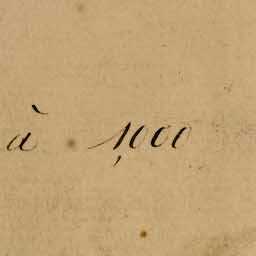 à 1000